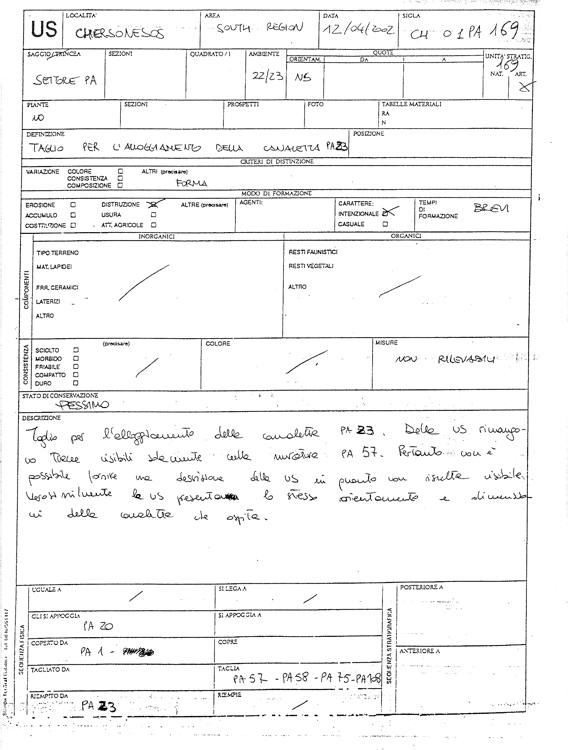 US
LOCALITA'
CHERSONESOS
AREA
SOUTH REGION
DATA
12/04/2002
SIGLA
CH 01 PA 169
SAGGIO/TRINCEA
SETTORE PA
SEZIONI
QUADRATO/I
AMBIENTE
22/23
QUOTE
ORIENTAM.
NS
DA
A
UNITA' STRATIG.
169
NAT. ART.
X
PIANTE
NO
SEZIONI
PROSPETTI
FOTO
TABELLE MATERIALI
RA
N
DEFINIZIONE
TAGLIO PER L'ALLOGGIAMENTO DELLA CANALETTA PA23
POSIZIONE
CRITERI DI DISTINZIONE
VARIAZIONE COLORE ☐ ALTRI (precisare)
CONSISTENZA ☐
COMPOSIZIONE ☐ FORMA
MODO DI FORMAZIONE
EROSIONE ☐ DISTRUZIONE ☒ ALTRE (precisare)
ACCUMULO ☐ USURA ☐
COSTRUZIONE ☐ ATT. AGRICOLE ☐
AGENTI:
CARATTERE:
INTENZIONALE ☒
CASUALE ☐
TEMPI
DI
FORMAZIONE
BREVI
COMPONENTI
INORGANICI
TIPO TERRENO
MAT. LAPIDEI
FRR. CERAMICI
LATERIZI
ALTRO
ORGANICI
RESTI FAUNISTICI
RESTI VEGETALI
ALTRO
CONSISTENZA
(precisare)
SCIOLTO ☐
MORBIDO ☐
FRIABILE ☐
COMPATTO ☐
DURO ☐
COLORE
MISURE
NON RILEVABILI
STATO DI CONSERVAZIONE
PESSIMO
DESCRIZIONE
Taglio per l'alloggiamento della canaletta PA 23. Della US rimango-
no tracce visibili solamente nella muratura PA 57. Pertanto non è
possibile fornire una descrizione della US in quanto non risulta visibile.
Verosimilmente la US presentava lo stesso orientamento e dimensio-
ni della canaletta che ospita.
SEQUENZA FISICA
UGUALE A
SI LEGA A
GLI SI APPOGGIA
PA 20
SI APPOGGIA A
COPERTO DA
PA 1 -
COPRE
TAGLIATO DA
TAGLIA
PA 57 - PA 58 - PA 75 - PA 168
RIEMPITO DA
PA 23
RIEMPIE
SEQUENZA STRATIGRAFICA
POSTERIORE A
ANTERIORE A